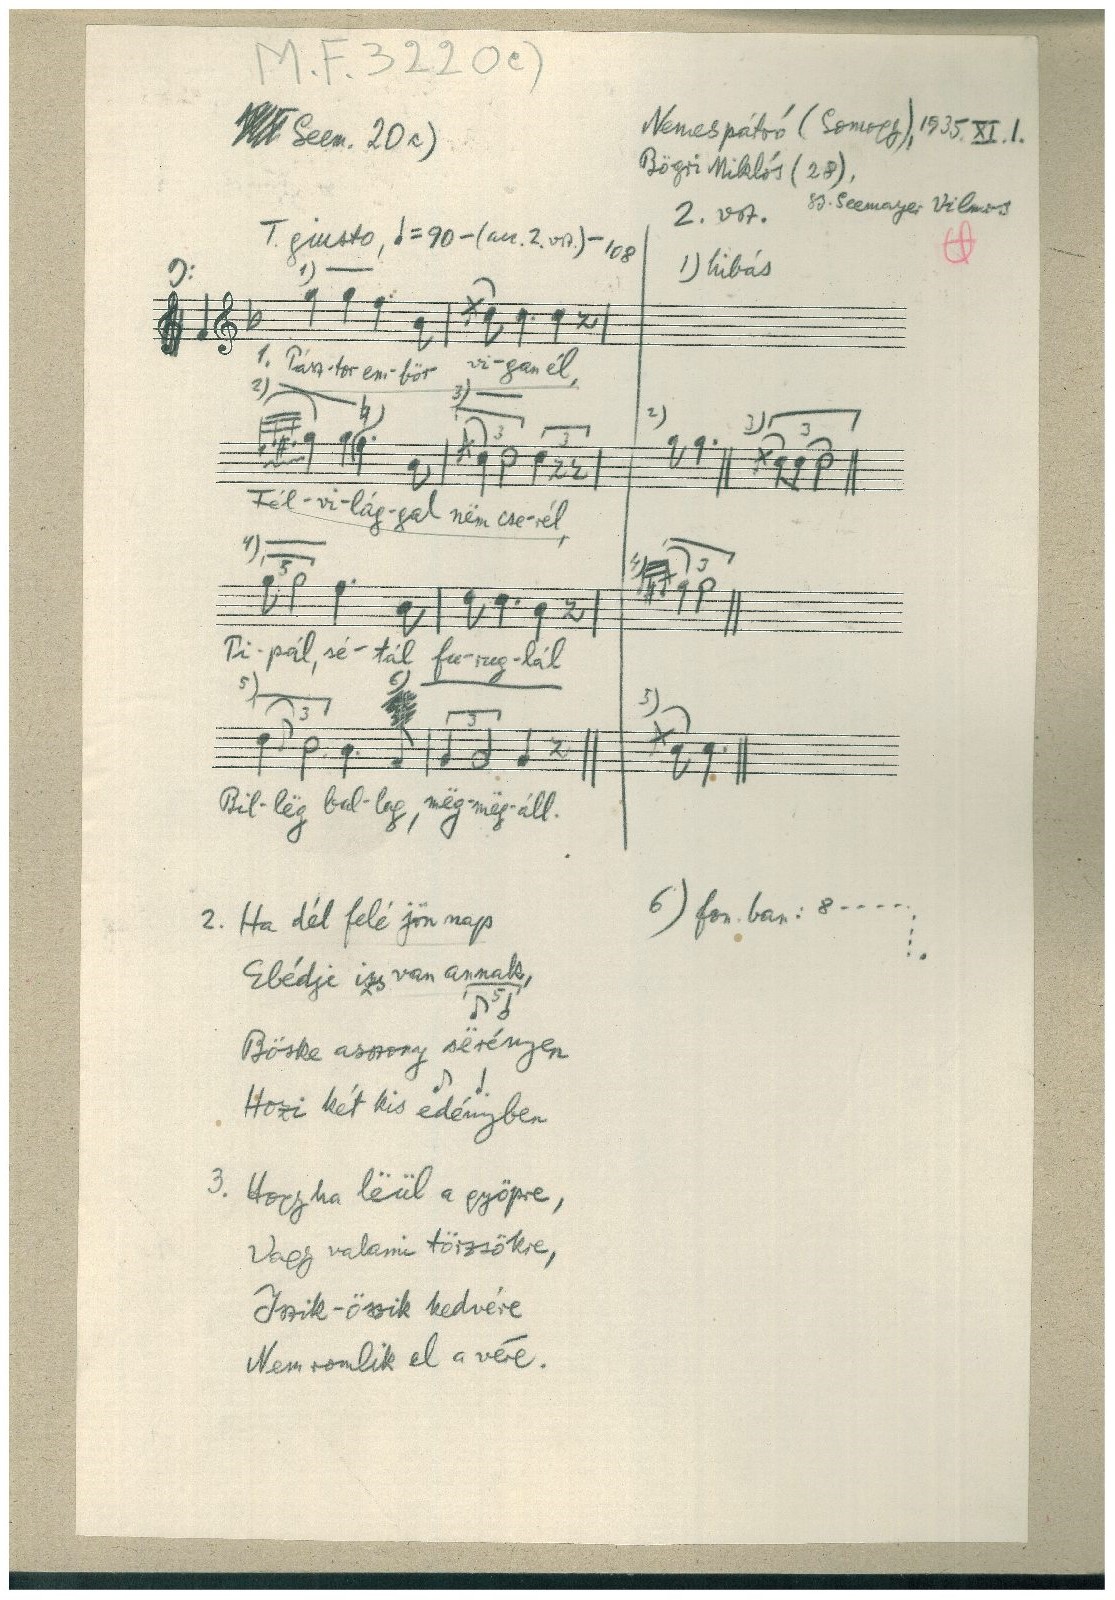 M.F. 3220c)
Seem. 20c)
Nemespátró (Somogy), 1935. XI. 1.
Bögri Miklós (28),
2. vsz. Seemayer Vilmos
T. giusto, ♩=90-(au. 2. vsz.)-108
1) hibás
1)
1. Pász-tor em-bör vi-gan él,
2) 3) 2) 3)
3 3 3
Fél-vi-lág-gal nëm cse-rél,
4) 4)
5 3
Ti-pál, sé-tál fu-rug-lál
5) 6) 5)
3 3
Bil-lëg bal-log, mëg-mëg-áll.
2. Ha dél felé jön nap
Ebédje is van annak,
5
Böske asszony sërényen
Hozi két kis edényben
6) fon. ban: 8
3. Hogyha lëül a gyöpre,
Vagy valami törzsökre,
Iszik-öszik kedvére
Nem romlik el a vére.